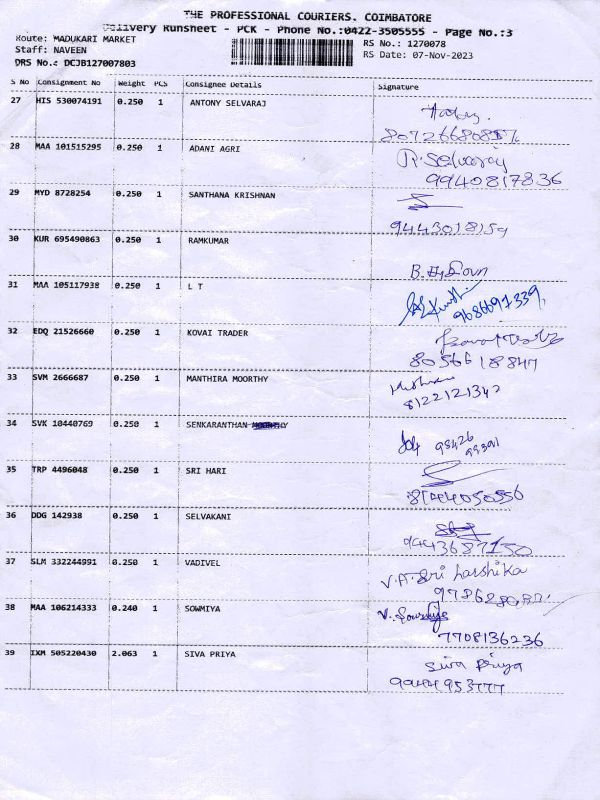 THE PROFESSIONAL COURIERS. COIMBATORE
Delivery Runsheet - PCK - Phone No.:0422-3505555 - Page No.:3
Route: MADUKARI MARKET
RS No.: 1270078
Staff: NAVEEN
RS Date: 07-Nov-2023
DRS No.: DCJB127007803
S No Consignment No Weight PCS Consignee Details Signature
27 HIS 530074191 0.250 1 ANTONY SELVARAJ
28 MAA 101515295 0.250 1 ADANI AGRI
P. Selvaraj
9940817836
29 MYD 8728254 0.250 1 SANTHANA KRISHNAN
9443018159
30 KUR 695490863 0.250 1 RAMKUMAR
31 MAA 105117938 0.250 1 L T
9686691339
32 EDQ 21526660 0.250 1 KOVAI TRADER
8056618847
33 SVM 2666687 0.250 1 MANTHIRA MOORTHY
8122121342
34 SVK 10440769 0.250 1 SENKARANTHAN MOORTHY
98426
99391
35 TRP 4496048 0.250 1 SRI HARI
36 DDG 142938 0.250 1 SELVAKANI
9443687150
37 SLM 332244991 0.250 1 VADIVEL
V.A. Sri harshika
38 MAA 106214333 0.240 1 SOWMIYA
V. Sowmiya
7708136236
39 IXM 505220430 2.063 1 SIVA PRIYA
Siva Priya
9944953777